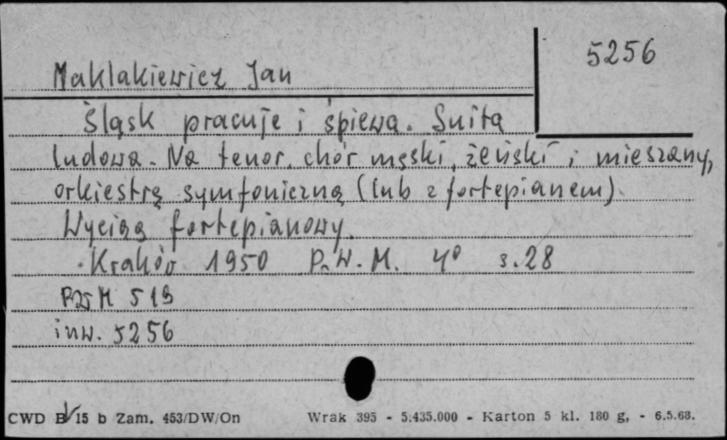 5256
Maklakiewicz Jan
Śląsk pracuje i śpiewa. Suita
ludowa. Na tenor, chór męski, żeński i mieszany,
orkiestrą symfoniczną (lub z fortepianem).
Wyciąg fortepianowy.
Kraków 1950 P.W.M. 4° s. 28
519
inw. 5256
CWD B/15 b Zam. 453/DW/On Wrak 395 - 5.435.000 - Karton 5 kl. 180 g, - 6.5.68.